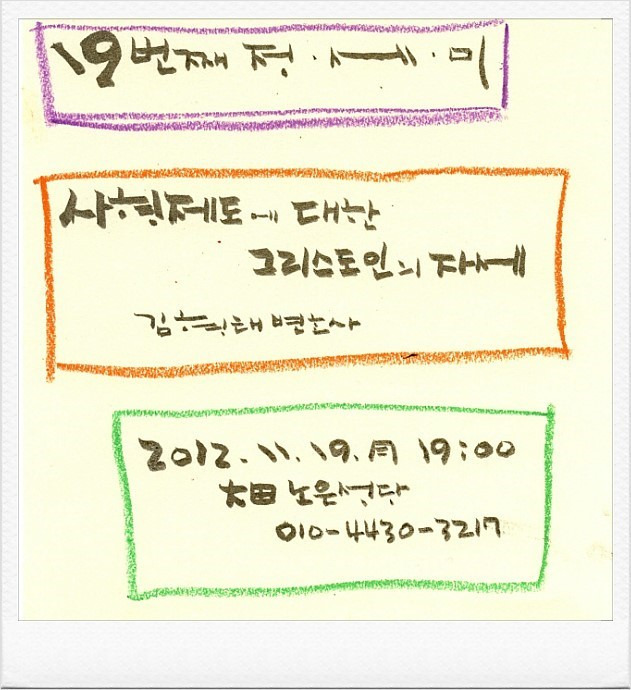 19번째 정·세·미
사형제도에 대한
그리스도인의 자세
김형태 변호사
2012.11.19.月 19:00
大田 노은성당
010-4430-3217